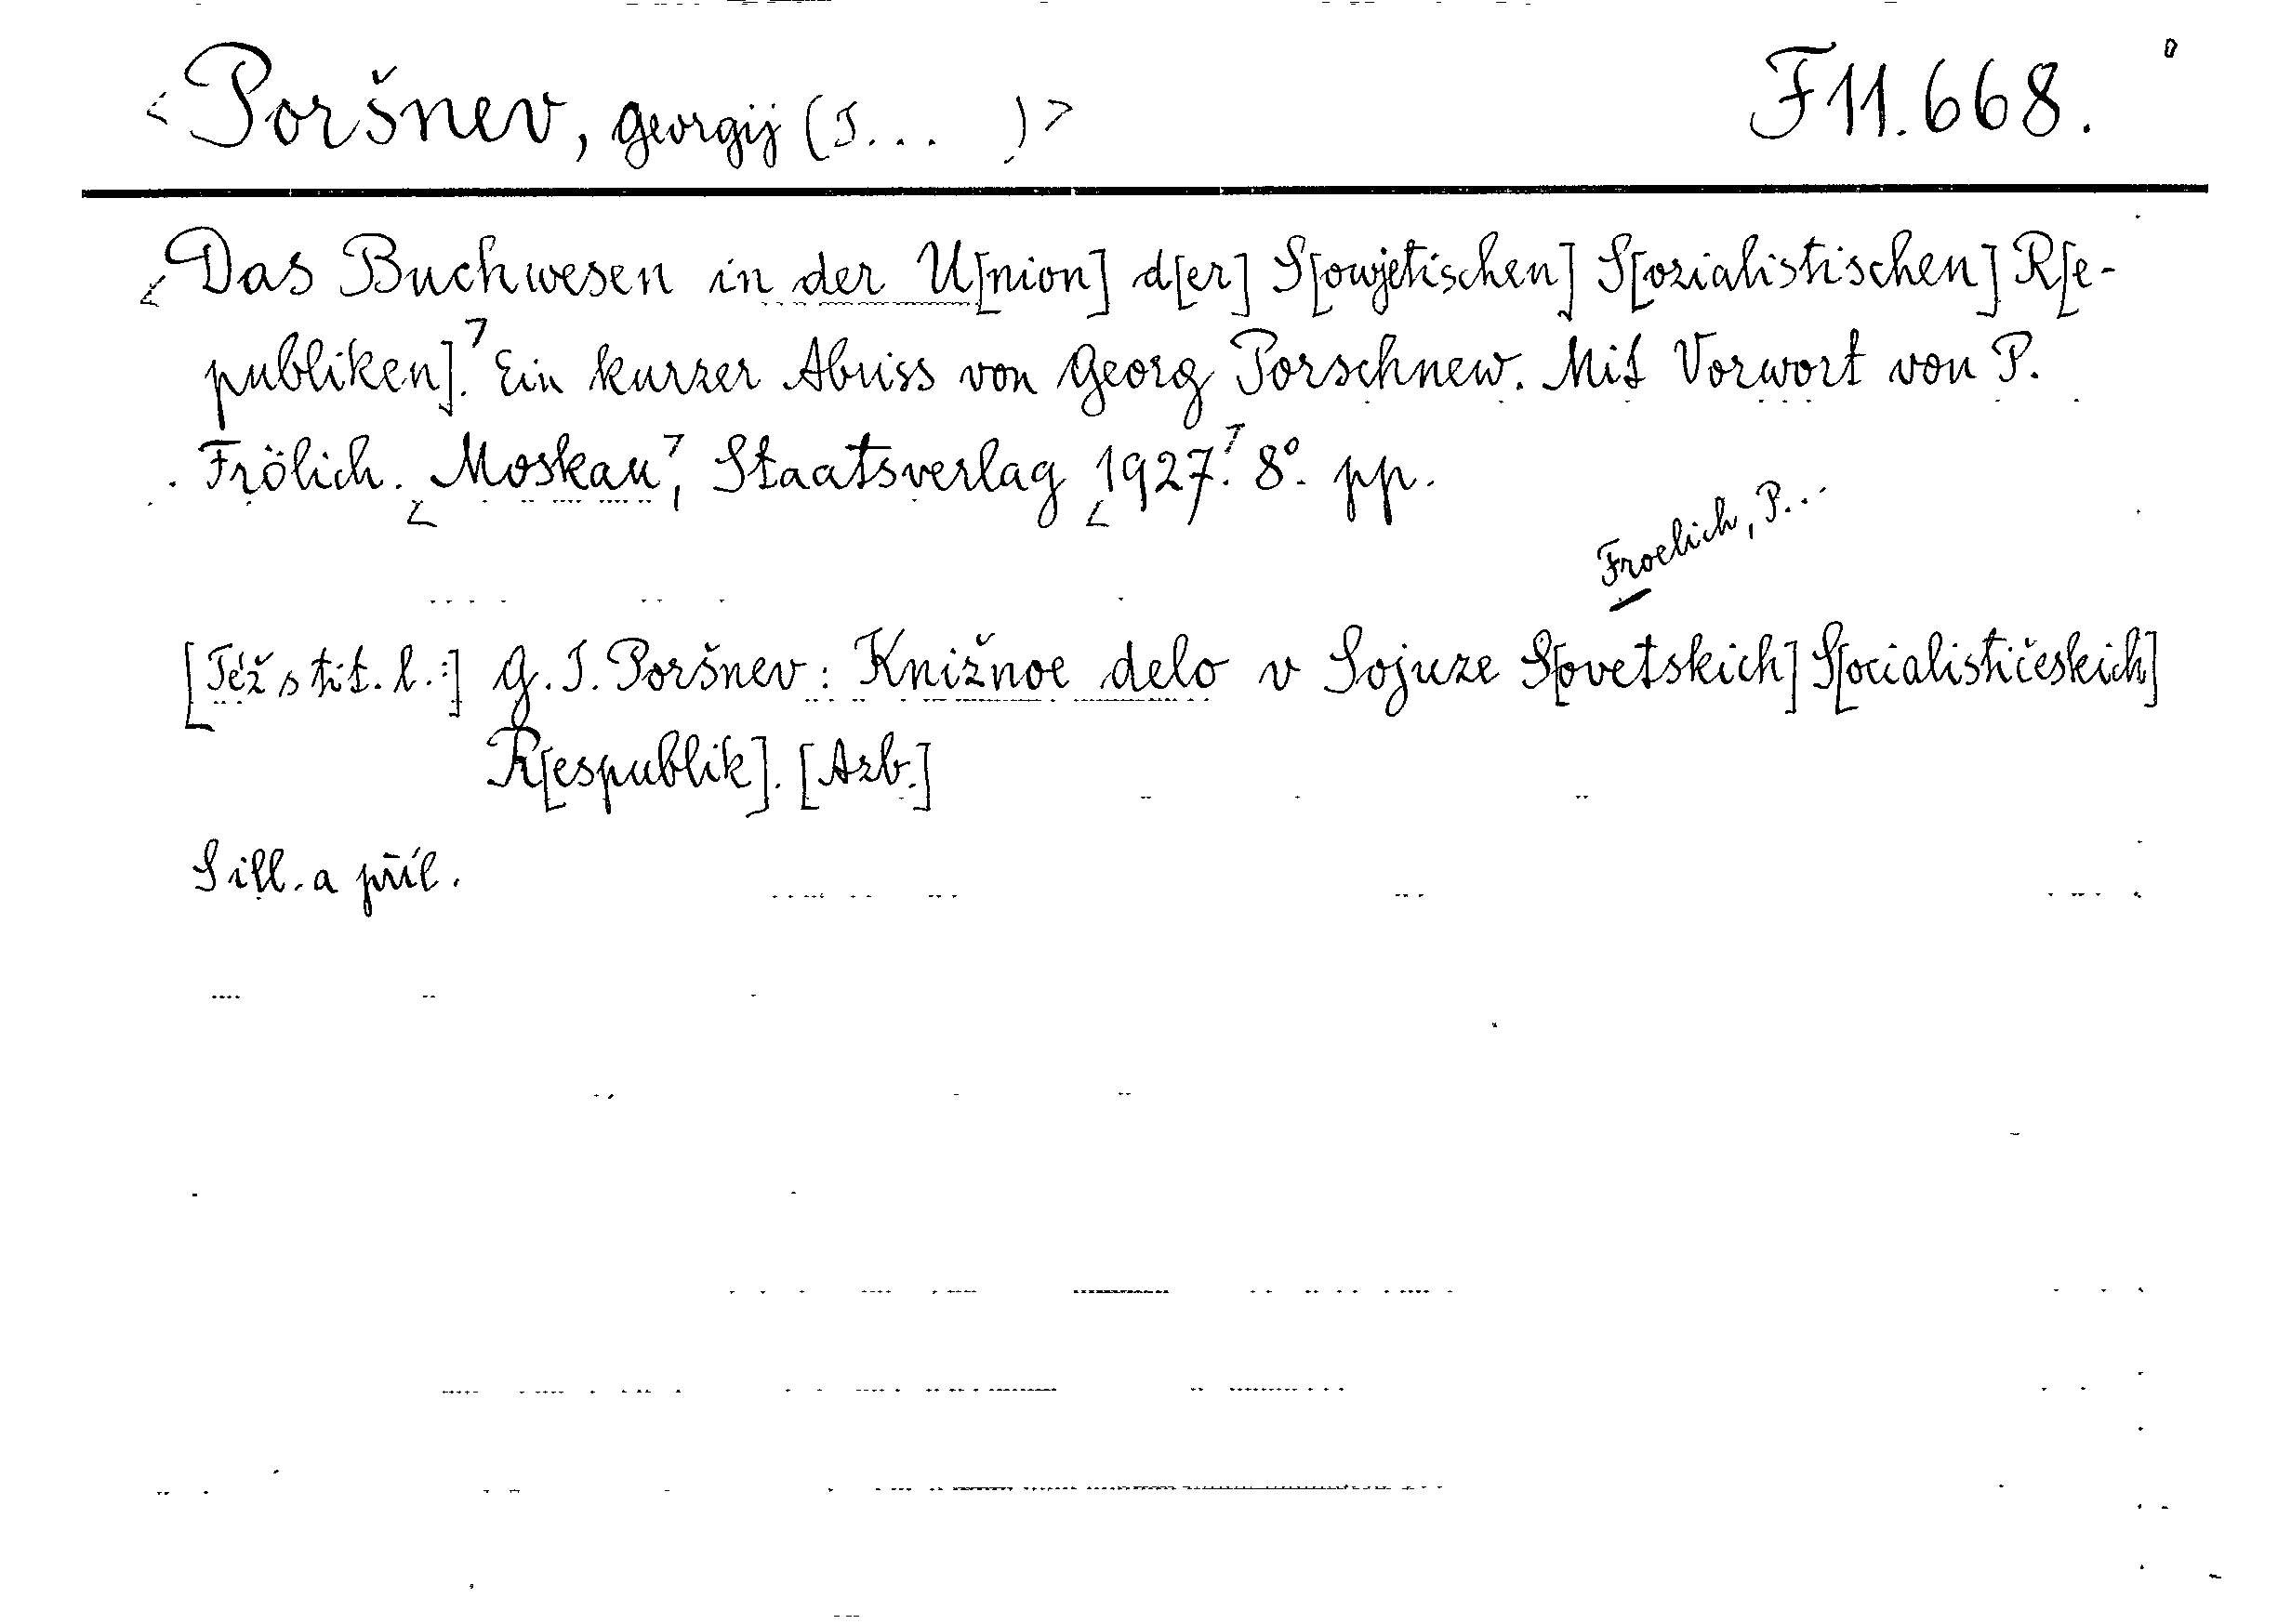 <Poršnev, Georgij (I... )> F 11.668.
<Das Buchwesen in der U[nion] d[er] S[owjetischen] S[ozialistischen] R[e-
publiken].> Ein kurzer Abriss von Georg Porschnew. Mit Vorwort von P.
Frölich. <Moskau>, Staatsverlag <1927.> 8°. pp.
Froelich, P...
[Též s tit. l.:] G. I. Poršnev: Knižnoe delo v Sojuze S[ovetskich] S[ocialističeskich]
R[espublik]. [Azb.]
S ill. a příl.